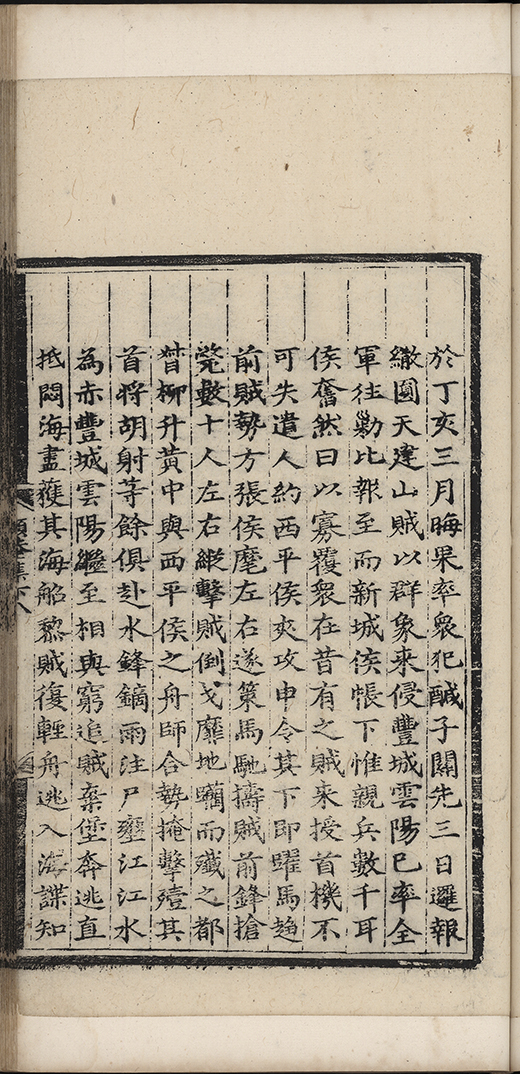 於丁亥三月晦果率衆犯醎子關先三日邏報
繳圓天建山賊以群象来侵豐城雲陽已率全
軍往勦比報至而新城侯帳下惟親兵數千耳
侯奮然曰以寡覆衆在昔有之賊来授首機不
可失遣人約西平侯夾攻申令其下即躍馬趋
前賊勢方張侯麾左右遂策馬馳擣賊前鋒搶
斃數十人左右縱擊賊倒戈靡地躪而殱之都
督柳升黃中與西平侯之舟師合勢掩擊殪其
首将胡射等餘俱赴水鋒鏑雨注尸壅江江水
為赤豐城雲陽繼至相與窮追賊棄堡奔逃直
抵悶海盡獲其海船黎賊復輕舟逃入海諜知